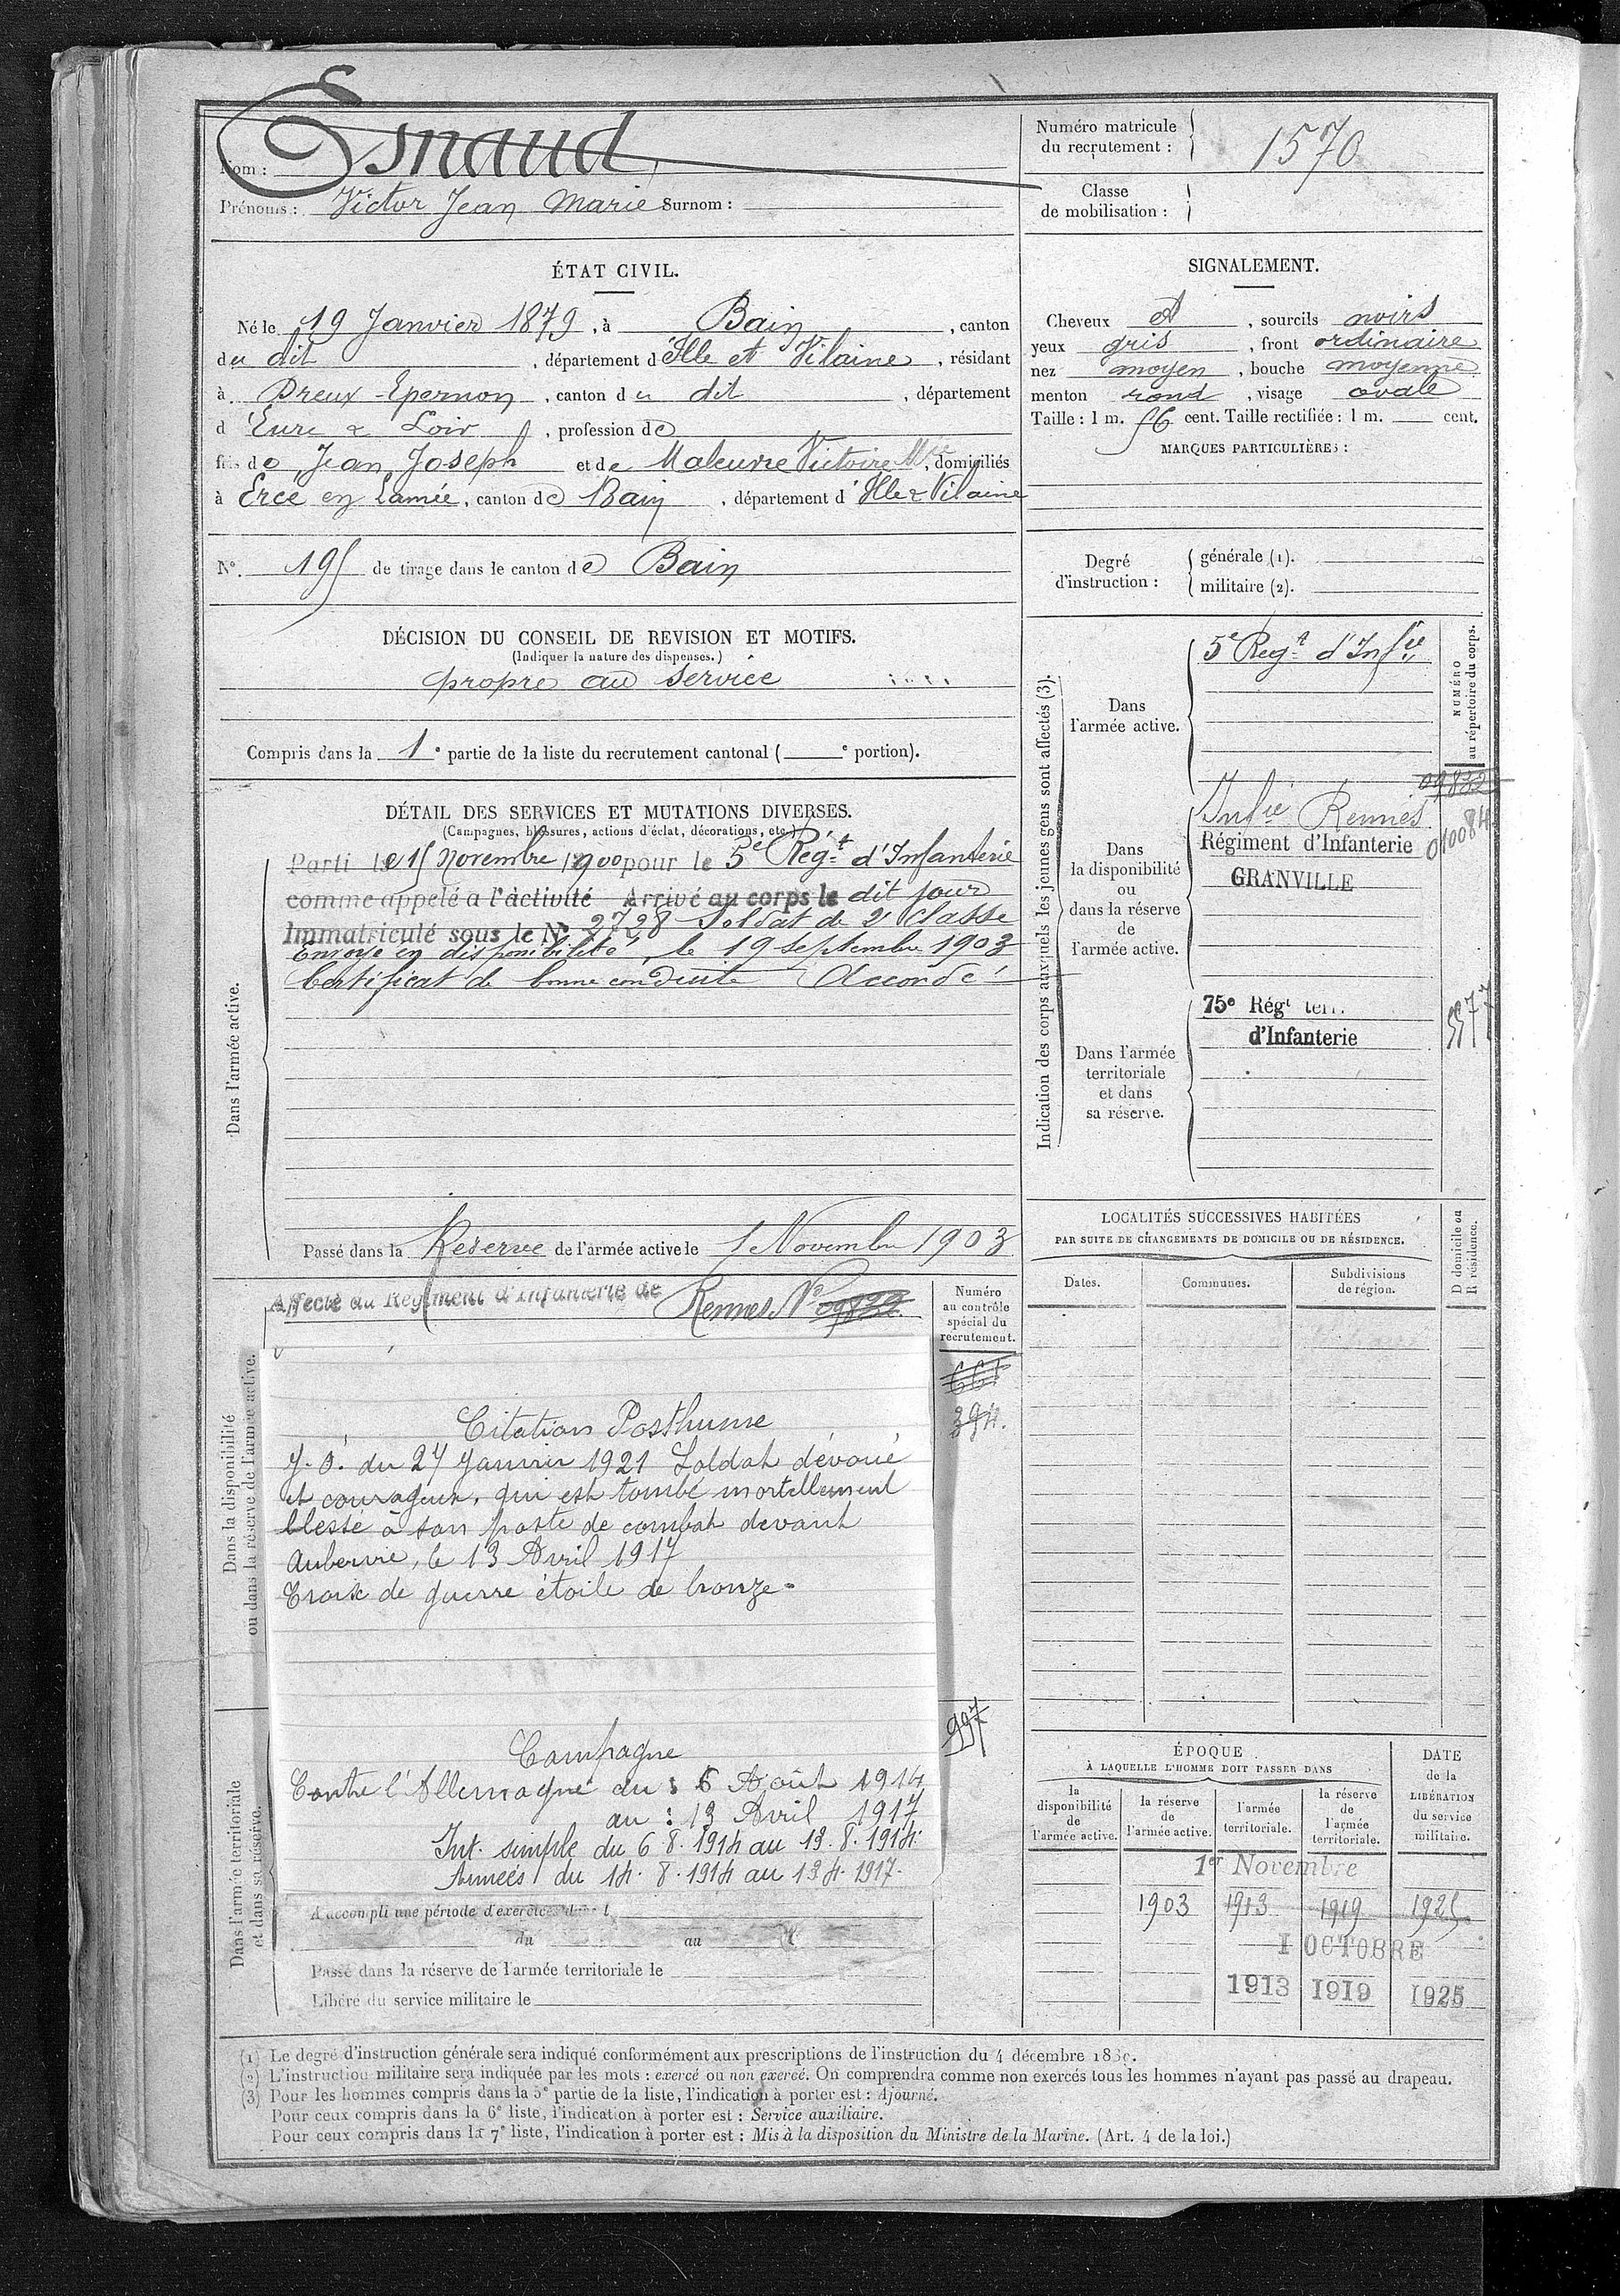 Nom : Esnaud
Prénoms : Victor Jean Marie Surnom :
Numéro matricule du recrutement : 1570
Classe de mobilisation :
ÉTAT CIVIL.
Né le 19 Janvier 1879, à Bain, canton
du dit, département d'Ille et Vilaine, résidant
à Dreux - Epernon, canton du dit, département
d Eure & Loir, profession de
fils de Jean Joseph et de Maleuvre Victoire Mie, domiciliés
à Ercé en Lamée, canton de Bain, département d'Ille & Vilaine
N° 195 de tirage dans le canton de Bain
SIGNALEMENT.
Cheveux et, sourcils noirs
yeux gris, front ordinaire
nez moyen, bouche moyenne
menton rond, visage ovale
Taille : 1 m. 56 cent. Taille rectifiée : 1 m. cent.
MARQUES PARTICULIÈRES :
Degré d'instruction : générale (1).
militaire (2).
DÉCISION DU CONSEIL DE REVISION ET MOTIFS.
(Indiquer la nature des dispenses.)
propre au service
Compris dans la 1e partie de la liste du recrutement cantonal ( e portion).
DÉTAIL DES SERVICES ET MUTATIONS DIVERSES.
(Campagnes, blessures, actions d'éclat, décorations, etc.)
Dans l'armée active.
Parti le 15 Novembre 1900 pour le 5e Régt d'Infanterie
comme appelé a l'àctivité Arrivé au corps le dit jour
Immatriculé sous le N° 2728 Soldat de 2e classe
Envoyé en disponibilité, le 19 septembre 1903
Certificat de bonne conduite Accordé
Passé dans la Réserve de l'armée active le 1 Novembre 1903
Indication des corps auxquels les jeunes gens sont affectés (3).
NUMÉRO au répertoire du corps.
Dans l'armée active.
5e Regt d'Infie
09822
Dans la disponibilité ou dans la réserve de l'armée active.
Infie Rennes
Régiment d'Infanterie 010084
GRANVILLE
Dans l'armée territoriale et dans sa réserve.
75e Régt terr.
d'Infanterie
5577
Dans la disponibilité ou dans la réserve de l'armée active.
Affecté au Régiment d'Infanterie de Rennes N° 09822
Numéro au contrôle spécial du recrutement.
661
394.
Citation Posthume
J. O. du 27 Janvier 1921 Soldat dévoué
et courageux, qui est tombé mortellement
blessé à son poste de combat devant
Auberive, le 13 Avril 1917
Croix de guerre étoile de bronze.
997
Campagne
Contre l'Allemagne du : 6 Août 1914
au : 13 Avril 1917
Int. simple du 6 8. 1914 au 13. 8. 1914.
Armées du 14. 8. 1914 au 13 4. 1917.
Dans l'armée territoriale et dans sa réserve.
A accompli une période d'exercices dans l
du au
Passé dans la réserve de l'armée territoriale le
Libéré du service militaire le
LOCALITÉS SUCCESSIVES HABITÉES
PAR SUITE DE CHANGEMENTS DE DOMICILE OU DE RÉSIDENCE.
Dates. Communes. Subdivisions de région. D domicile ou R résidence.
ÉPOQUE
À LAQUELLE L'HOMME DOIT PASSER DANS
la disponibilité de l'armée active. la réserve de l'armée active. l'armée territoriale. la réserve de l'armée territoriale.
DATE de la LIBÉRATION du service militaire.
1er Novembre
1903 1913 1919 1925
1 OCTOBRE
1913 1919 1925
(1) Le degré d'instruction générale sera indiqué conformément aux prescriptions de l'instruction du 4 décembre
(2) L'instruction militaire sera indiquée par les mots : exercé ou non exercé. On comprendra comme non exercés tous les hommes n'ayant pas passé au drapeau.
(3) Pour les hommes compris dans la 5e partie de la liste, l'indication à porter est : Ajourné.
Pour ceux compris dans la 6e liste, l'indication à porter est : Service auxiliaire.
Pour ceux compris dans la 7e liste, l'indication à porter est : Mis à la disposition du Ministre de la Marine. (Art. 4 de la loi.)